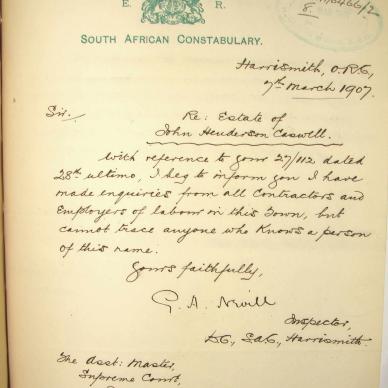 E. R.
6466/2
8.
SOUTH AFRICAN CONSTABULARY.
Harrismith, O.R.C,
7th March 1907.
Sir.
Re: Estate of
John Henderson Caswell.
With reference to your 27/112 dated
28th ultimo, I beg to inform you I have
made enquiries from all Contractors and
Employers of labour in this Town, but
cannot trace anyone who Knows a person
of this name.
Yours faithfully,
G. A. Nevill
Inspector,
S.A.C, Harrismith.
The Asst: Master,
Supreme Court,